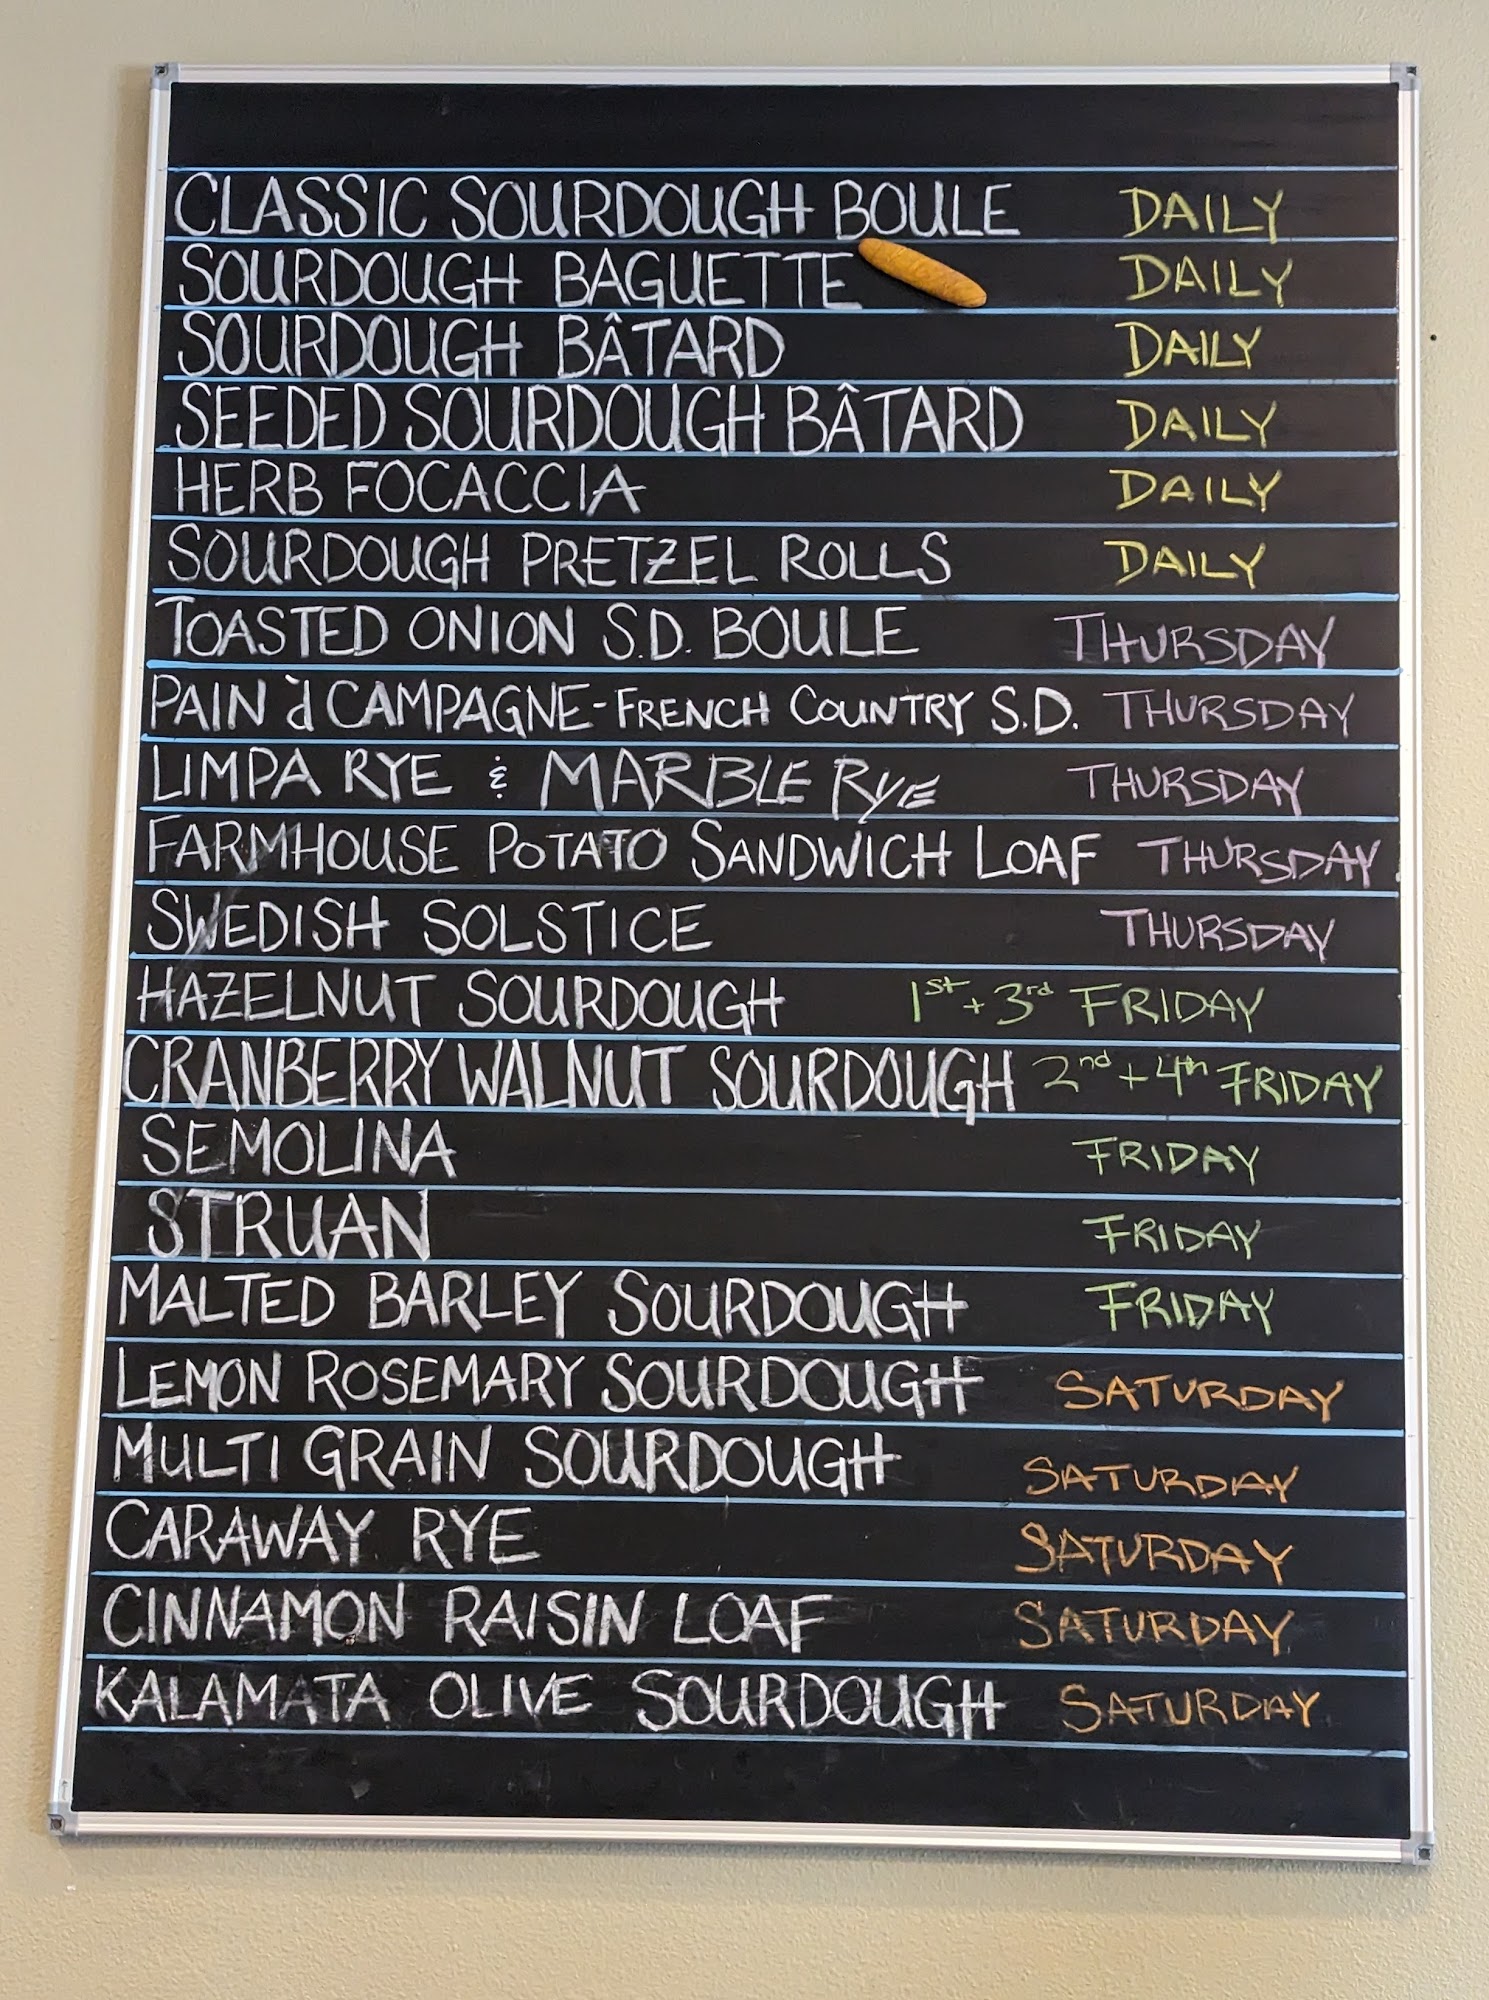 CLASSIC SOURDOUGH BOULE DAILY
SOURDOUGH BAGUETTE DAILY
SOURDOUGH BÂTARD DAILY
SEEDED SOURDOUGH BÂTARD DAILY
HERB FOCACCIA DAILY
SOURDOUGH PRETZEL ROLLS DAILY
TOASTED ONION S.D. BOULE THURSDAY
PAIN d̀ CAMPAGNE-FRENCH COUNTRY S.D. THURSDAY
LIMPA RYE & MARBLE RYE THURSDAY
FARMHOUSE POTATO SANDWICH LOAF THURSDAY
SWEDISH SOLSTICE THURSDAY
HAZELNUT SOURDOUGH 1st + 3rd FRIDAY
CRANBERRY WALNUT SOURDOUGH 2nd + 4th FRIDAY
SEMOLINA FRIDAY
STRUAN FRIDAY
MALTED BARLEY SOURDOUGH FRIDAY
LEMON ROSEMARY SOURDOUGH SATURDAY
MULTI GRAIN SOURDOUGH SATURDAY
CARAWAY RYE SATURDAY
CINNAMON RAISIN LOAF SATURDAY
KALAMATA OLIVE SOURDOUGH SATURDAY